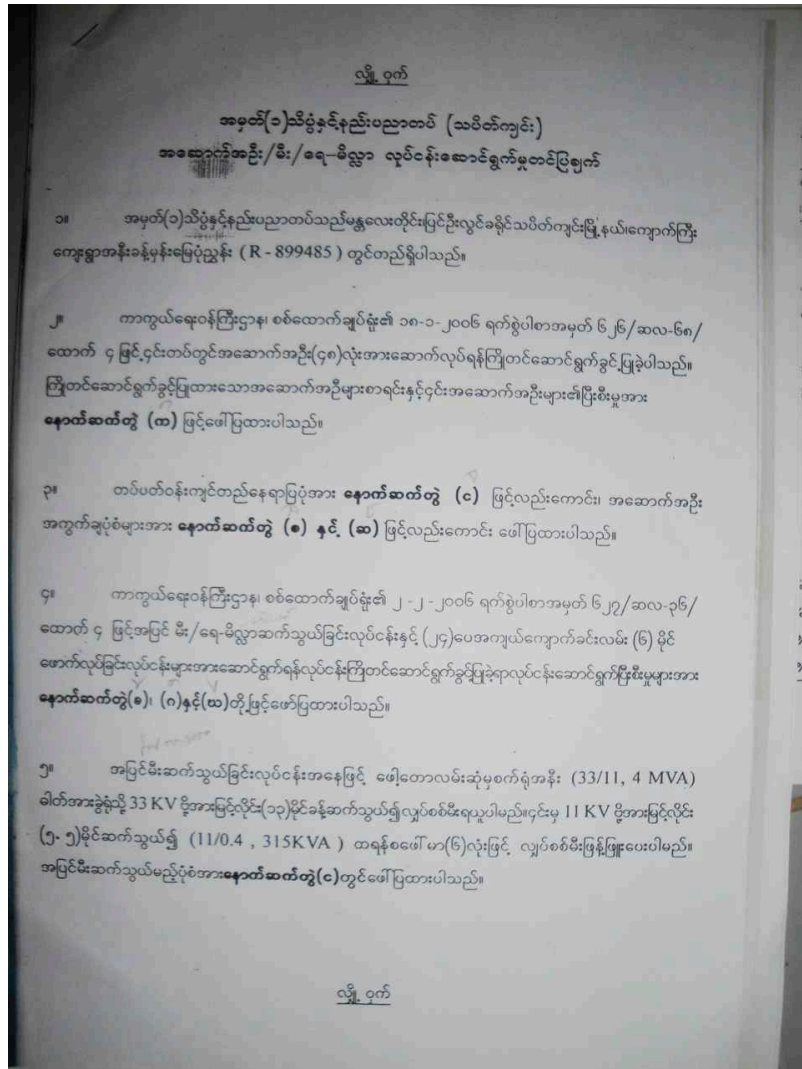 လျှို့ ဝှက်
အမှတ်(၁)သိပ္ပံနှင့်နည်းပညာတပ် (သပိတ်ကျင်း)
အဆောက်အဦး/မီး/ရေ-မိလ္လာ လုပ်ငန်းဆောင်ရွက်မှုတင်ပြချက်
၁။ အမှတ်(၁)သိပ္ပံနှင့်နည်းပညာတပ်သည်မန္တလေးတိုင်း၊ပြင်ဦးလွင်ခရိုင်သပိတ်ကျင်းမြို့နယ်၊ကျောက်ကြီး
ကျေးရွာအနီးခန့်မှန်းမြေပုံညွှန်း ( R - 899485 ) တွင်တည်ရှိပါသည်။
၂။ ကာကွယ်ရေးဝန်ကြီးဌာန၊ စစ်ထောက်ချုပ်ရုံး၏ ၁၈-၁-၂၀၀၆ ရက်စွဲပါစာအမှတ် ၆၂၆/ဆလ-၆၈/
ထောက် ၄ ဖြင့်၎င်းတပ်တွင်အဆောက်အဦး(၄၈)လုံးအားဆောက်လုပ်ရန်ကြိုတင်ဆောင်ရွက်ခွင့်ပြုခဲ့ပါသည်။
ကြိုတင်ဆောင်ရွက်ခွင့်ပြုထားသောအဆောက်အဦများစာရင်းနှင့်၎င်းအဆောက်အဦးများ၏ပြီးစီးမှုအား
နောက်ဆက်တွဲ (က) ဖြင့်ဖေါ်ပြထားပါသည်။
၃။ တပ်ပတ်ဝန်းကျင်တည်နေရာပြပုံအား နောက်ဆက်တွဲ (င) ဖြင့်လည်းကောင်း၊ အဆောက်အဦး
အကွက်ချပုံစံများအား နောက်ဆက်တွဲ (စ) နှင့် (ဆ) ဖြင့်လည်းကောင်း ဖေါ်ပြထားပါသည်။
၄။ ကာကွယ်ရေးဝန်ကြီးဌာန၊ စစ်ထောက်ချုပ်ရုံး၏ ၂ -၂ -၂၀၀၆ ရက်စွဲပါစာအမှတ် ၆၂၇/ဆလ-၃၆/
ထောက် ၄ ဖြင့်အပြင် မီး/ရေ-မိလ္လာဆက်သွယ်ခြင်းလုပ်ငန်းနှင့် (၂၄)ပေအကျယ်ကျောက်ခင်းလမ်း (၆) မိုင်
ဖောက်လုပ်ခြင်းလုပ်ငန်းများအားဆောင်ရွက်ရန်လုပ်ငန်းကြိုတင်ဆောင်ရွက်ခွင့်ပြုခဲ့ရာလုပ်ငန်းဆောင်ရွက်ပြီးစီးမှုများအား
နောက်ဆက်တွဲ(ခ)၊ (ဂ)နှင့်(ဃ)တို့ဖြင့်ဖော်ပြထားပါသည်။
၅။ အပြင်မီးဆက်သွယ်ခြင်းလုပ်ငန်းအနေဖြင့် ဖေါ့တောလမ်းဆုံမှစက်ရုံအနီး (33/11, 4 MVA)
ဓါတ်အားခွဲရုံသို့ 33 KV ဗို့အားမြင့်လိုင်း(၁၃)မိုင်ခန့်ဆက်သွယ်၍လျှပ်စစ်မီးရယူပါမည်။၎င်းမှ 11 KV ဗို့အားမြင့်လိုင်း
(၅.၅)မိုင်ဆက်သွယ်၍ (11/0.4 , 315KVA ) ထရန်စဖေါ်မာ(၆)လုံးဖြင့် လျှပ်စစ်မီးဖြန့်ဖြူးပေးပါမည်။
အပြင်မီးဆက်သွယ်မည့်ပုံစံအားနောက်ဆက်တွဲ(င)တွင်ဖေါ်ပြထားပါသည်။
လျှို့ ဝှက်